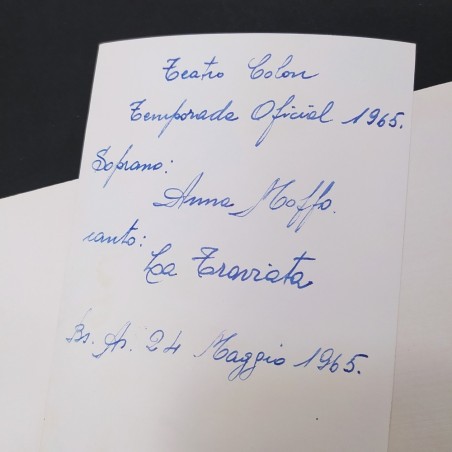 Teatro Colon
Temporada Oficial 1965.
Soprano:
Anna Moffo.
canto:
La Traviata
Bs. As. 24 Maggio 1965.